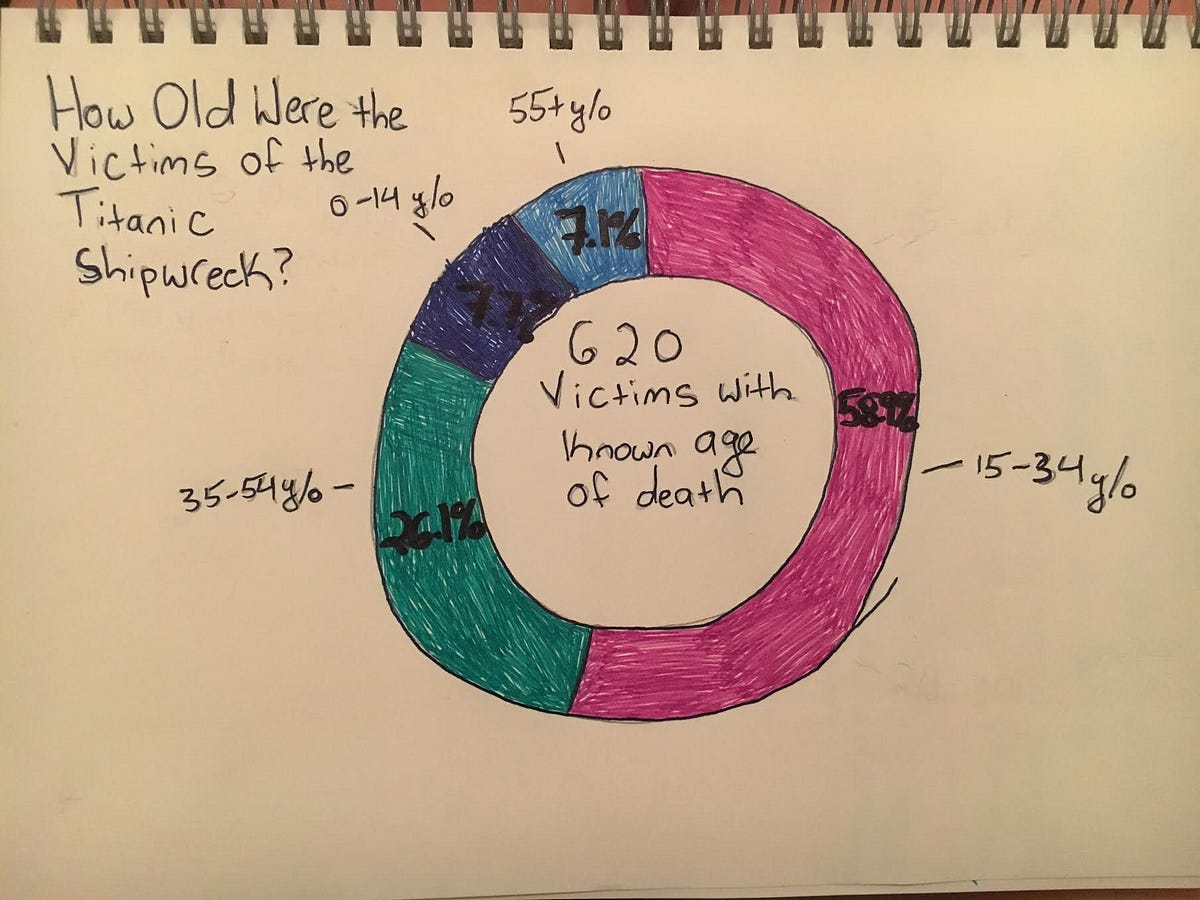 How Old Were the
Victims of the
Titanic
Shipwreck?
55+ y/o
0-14 y/o
7.1%
7.7%
620
Victims with
known age
of death
58.9%
15-34 y/o
35-54 y/o
26.1%